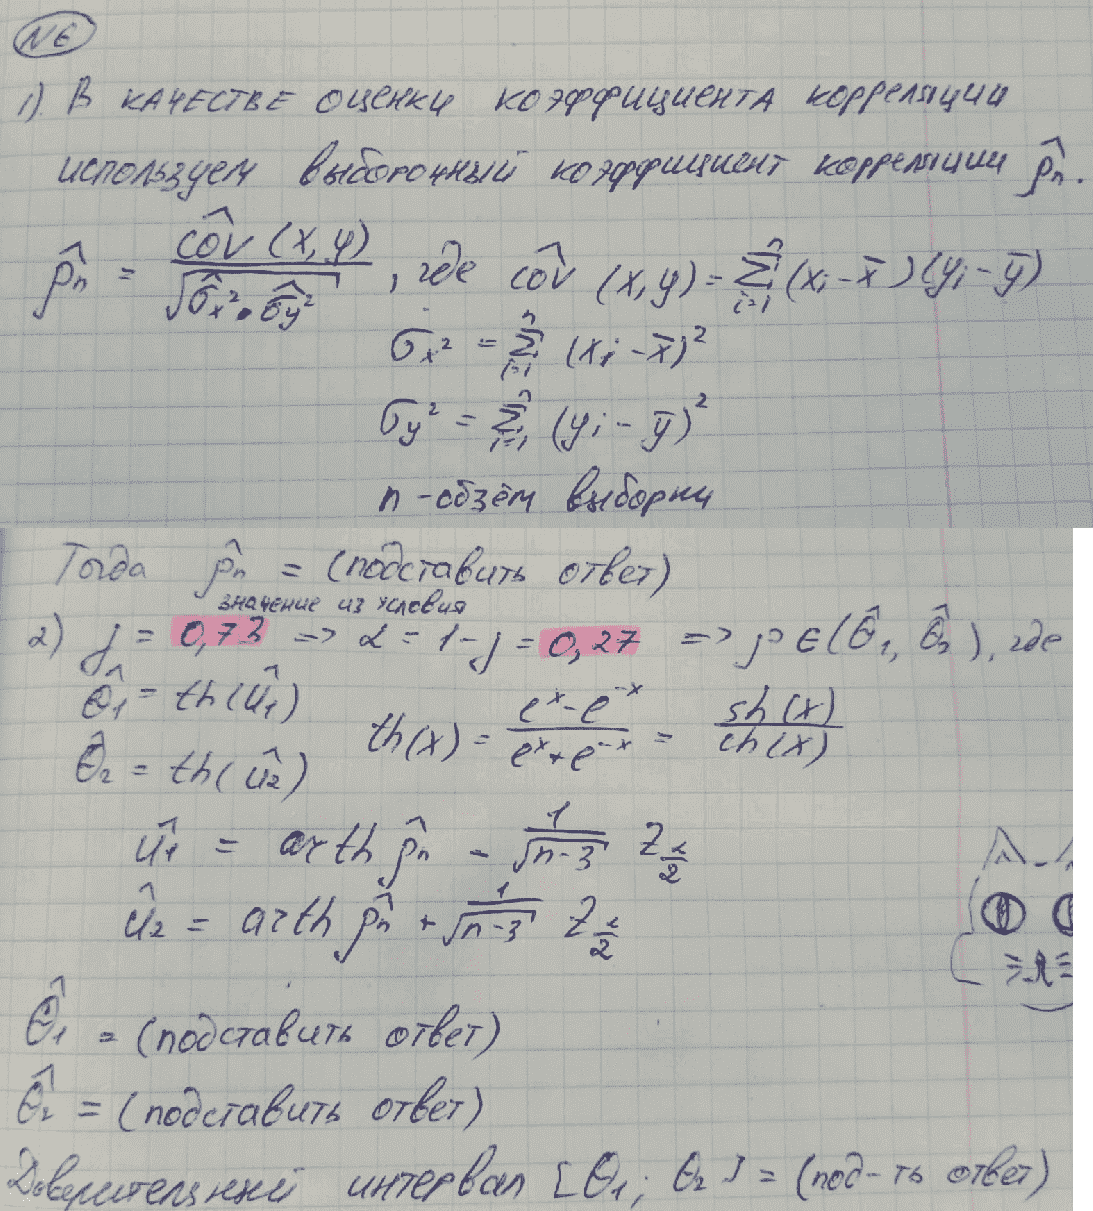 №6
1) В качестве оценки коэффициента корреляции
используем выборочный коэффициент корреляции ρ̂ₙ.
ρ̂ₙ = côv(x,y) / √(σ̂ₓ² · σ̂ᵧ²), где côv(x,y) = Σⁿᵢ₌₁ (xᵢ - x̄)(yᵢ - ȳ)
σₓ² = Σⁿᵢ₌₁ (xᵢ - x̄)²
σᵧ² = Σⁿᵢ₌₁ (yᵢ - ȳ)²
n - объём выборки
Тогда ρ̂ₙ = (подставить ответ)
значение из условия
2) γ = 0,73 => α = 1 - γ = 0,27 => ρ ∈ (θ̂₁, θ̂₂), где
θ̂₁ = th(û₁)
th(x) = (eˣ - e⁻ˣ) / (eˣ + e⁻ˣ) = sh(x) / ch(x)
θ̂₂ = th(û₂)
û₁ = arth ρ̂ₙ - 1/√(n-3) Z_(α/2)
û₂ = arth ρ̂ₙ + 1/√(n-3) Z_(α/2)
θ̂₁ = (подставить ответ)
θ̂₂ = (подставить ответ)
Доверительный интервал [θ₁; θ₂] = (под-ть ответ)